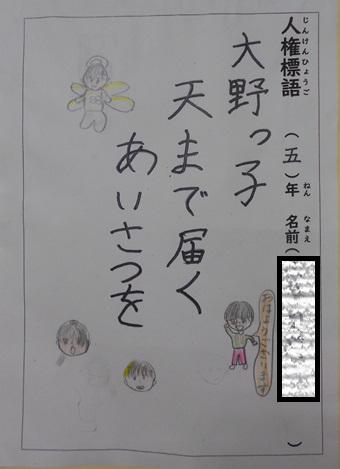 人権標語 (五)年 名前( )
じんけんひょうご ねん なまえ
大野っ子
天まで届く
あいさつを
おはようございます